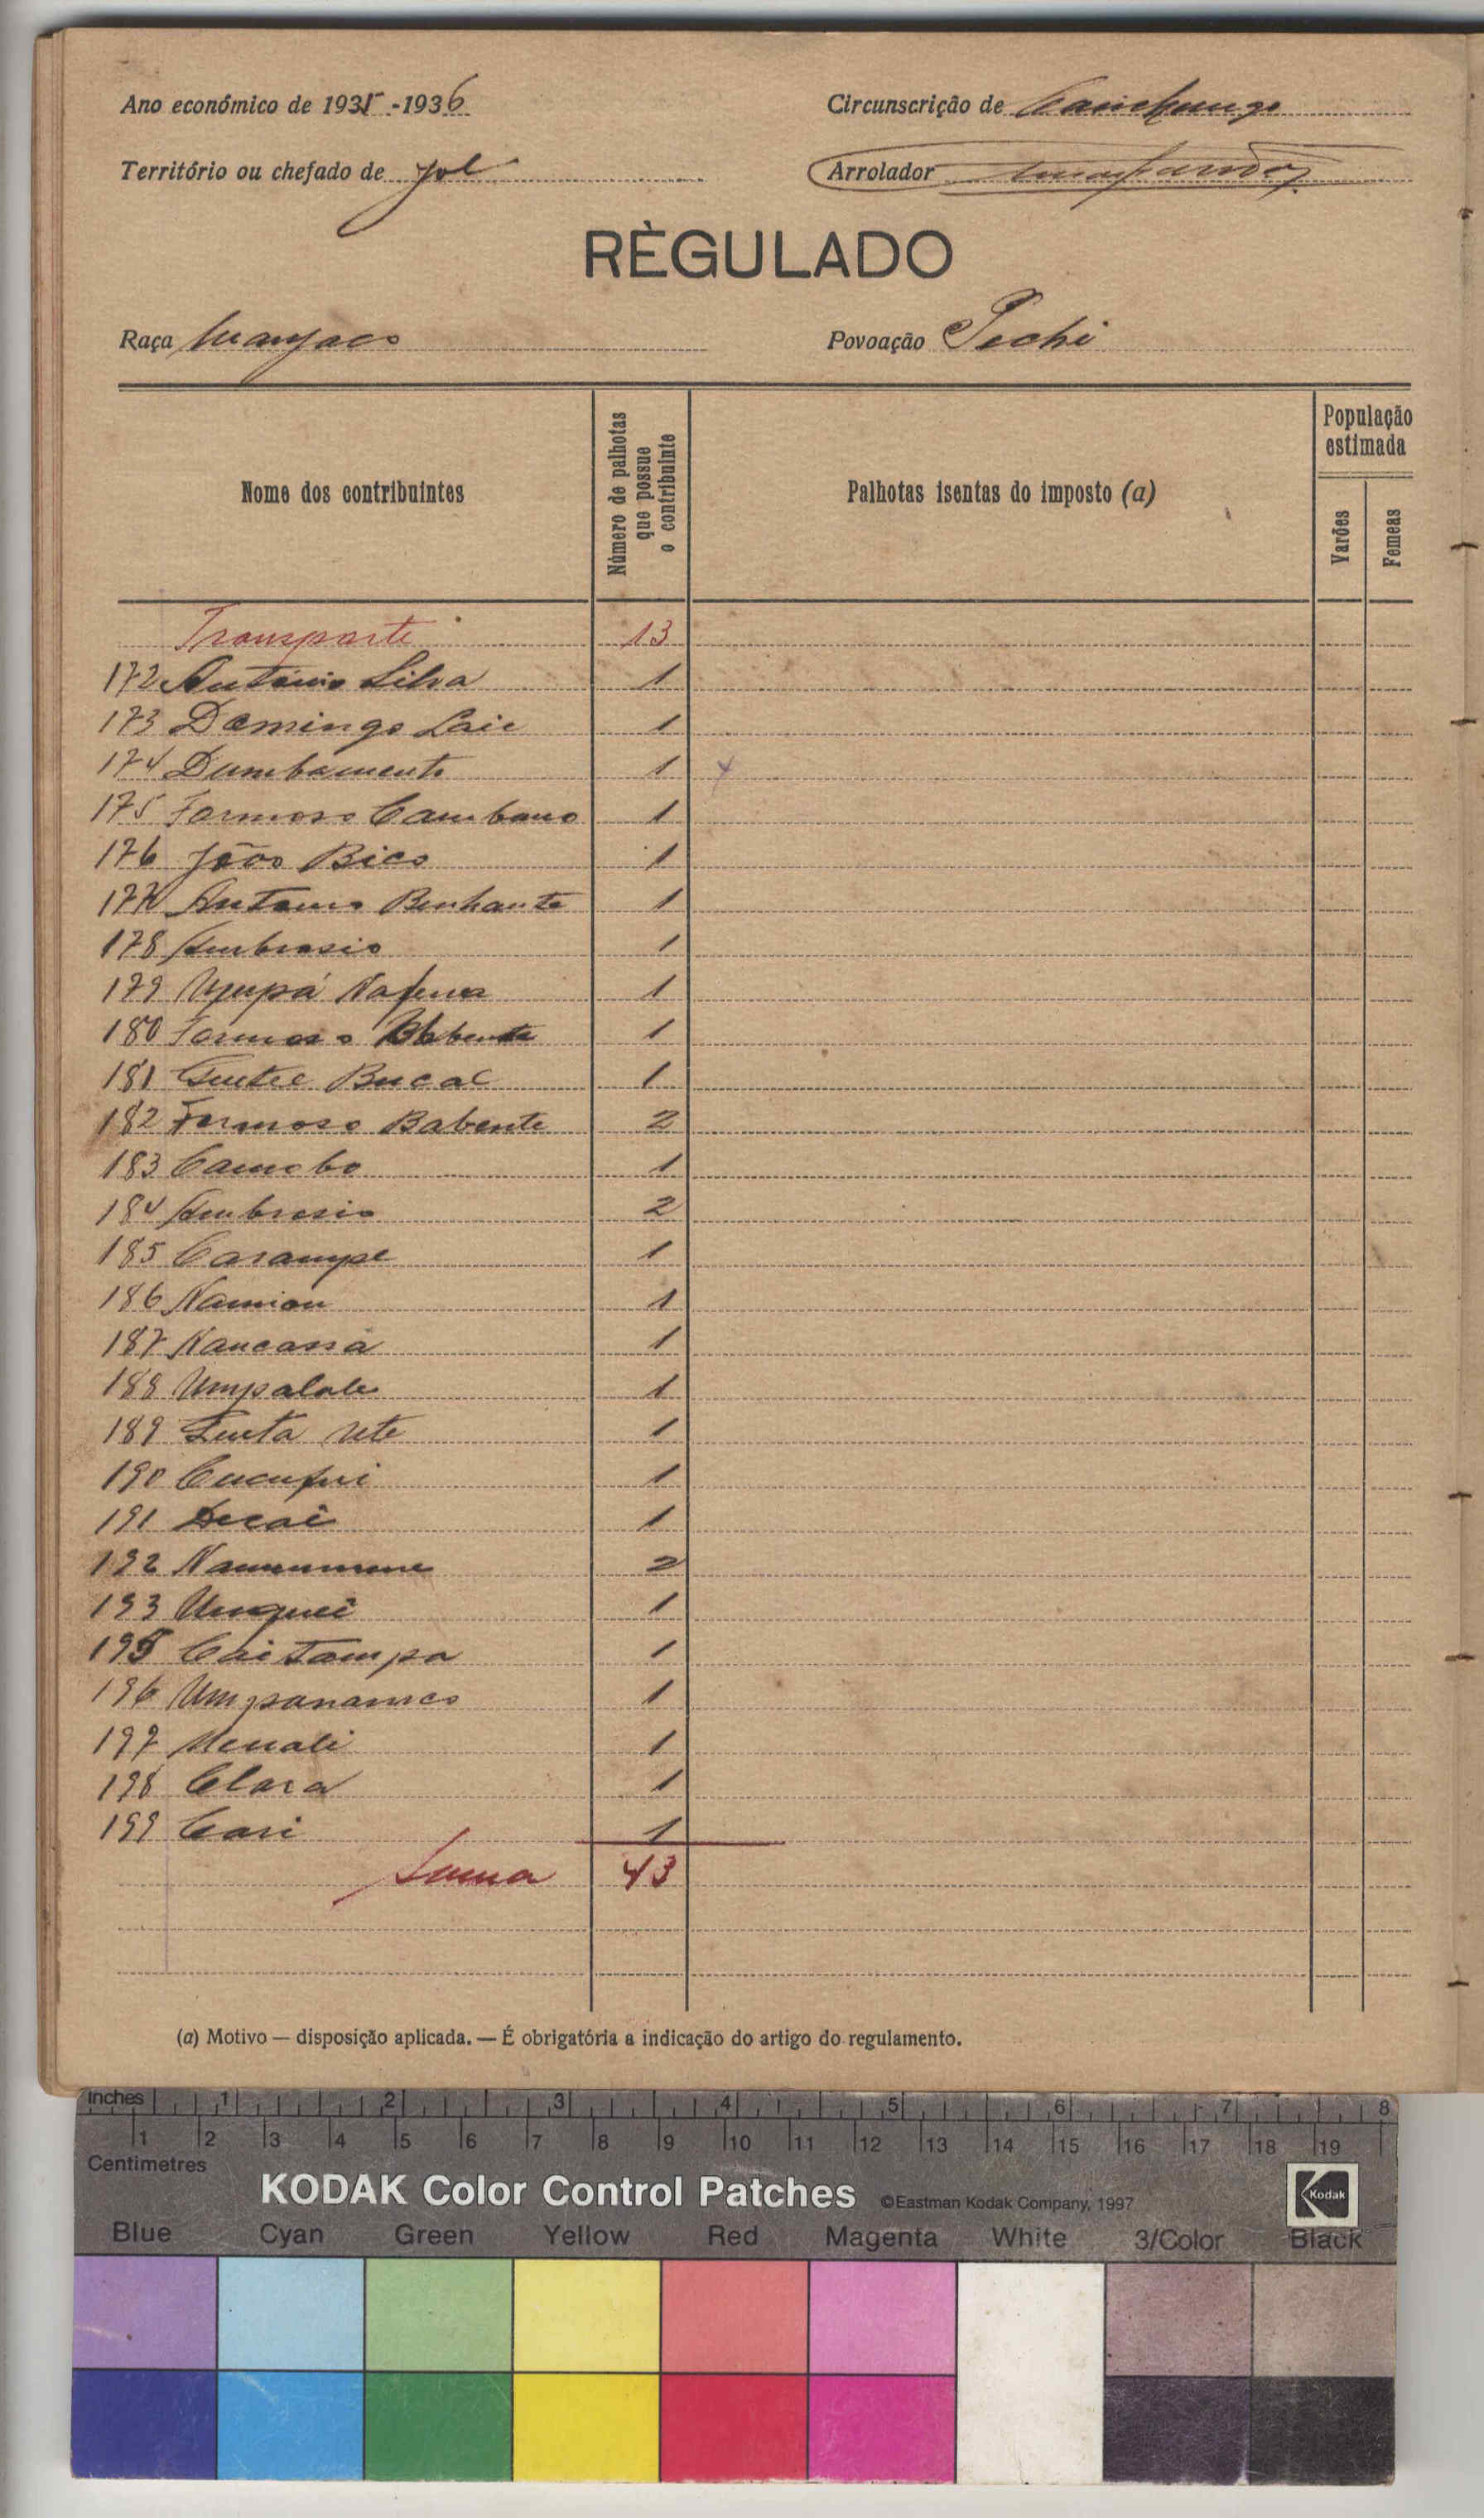 Ano económico de 1935-1936 Circunscrição de Canchungo
Território ou chefado de Jol Arrolador
RÈGULADO
Raça Manjaco Povoação Pechi
Nome dos contribuintes Número de palhotas que possue o contribuinte Palhotas isentas do imposto (a) População estimada Varões Femeas
Transporte 13
172 António Silva 1
173 Domingo Laie 1
174 Dumbamento 1
175 Formoso Cambano 1
176 João Bico 1
177 Antonio Benhante 1
178 Ambrosio 1
179 Upupá Nafena 1
180 Formoso 1
181 Gentil Bucal 1
182 Formoso Babente 2
183 Camobo 1
184 Ambrosio 2
185 Carampe 1
186 Namion 1
187 Nancassa 1
188 Umpalale 1
189 Lenta Ute 1
190 Cucufui 1
191 Decai 1
192 2
193 Umquei 1
195 Caitampa 1
196 Umpanamco 1
197 Menali 1
198 Clara 1
199 Cari 1
Suma 43
(a) Motivo — disposição aplicada. — É obrigatória a indicação do artigo do regulamento.
Inches 1 2 3 4 5 6 7 8
1 2 3 4 5 6 7 8 9 10 11 12 13 14 15 16 17 18 19
Centimetres
KODAK Color Control Patches ©Eastman Kodak Company, 1997 Kodak
Blue Cyan Green Yellow Red Magenta White 3/Color Black